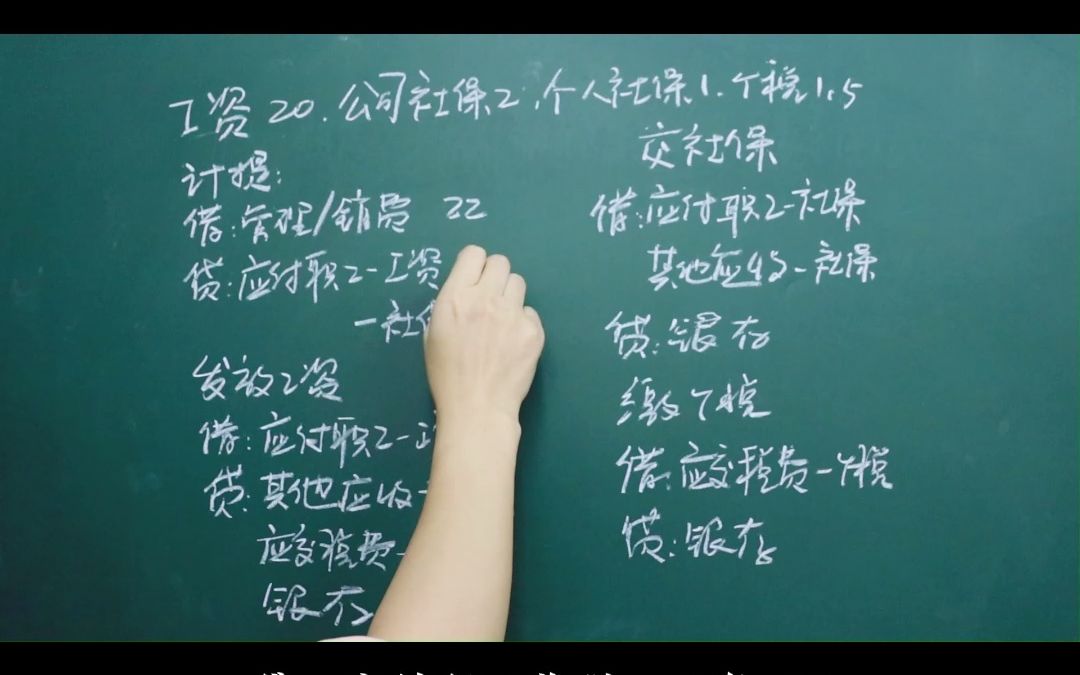 工资 20. 公司社保2. 个人社保1. 个税1.5
计提:
借:管理/销费 22
贷:应付职工-工资
-社保
发放工资
借:应付职工-工
贷:其他应收-
应交税费-
银存
交社保
借:应付职工-社保
其他应收-社保
贷:银存
缴个税
借:应交税费-个税
贷:银存